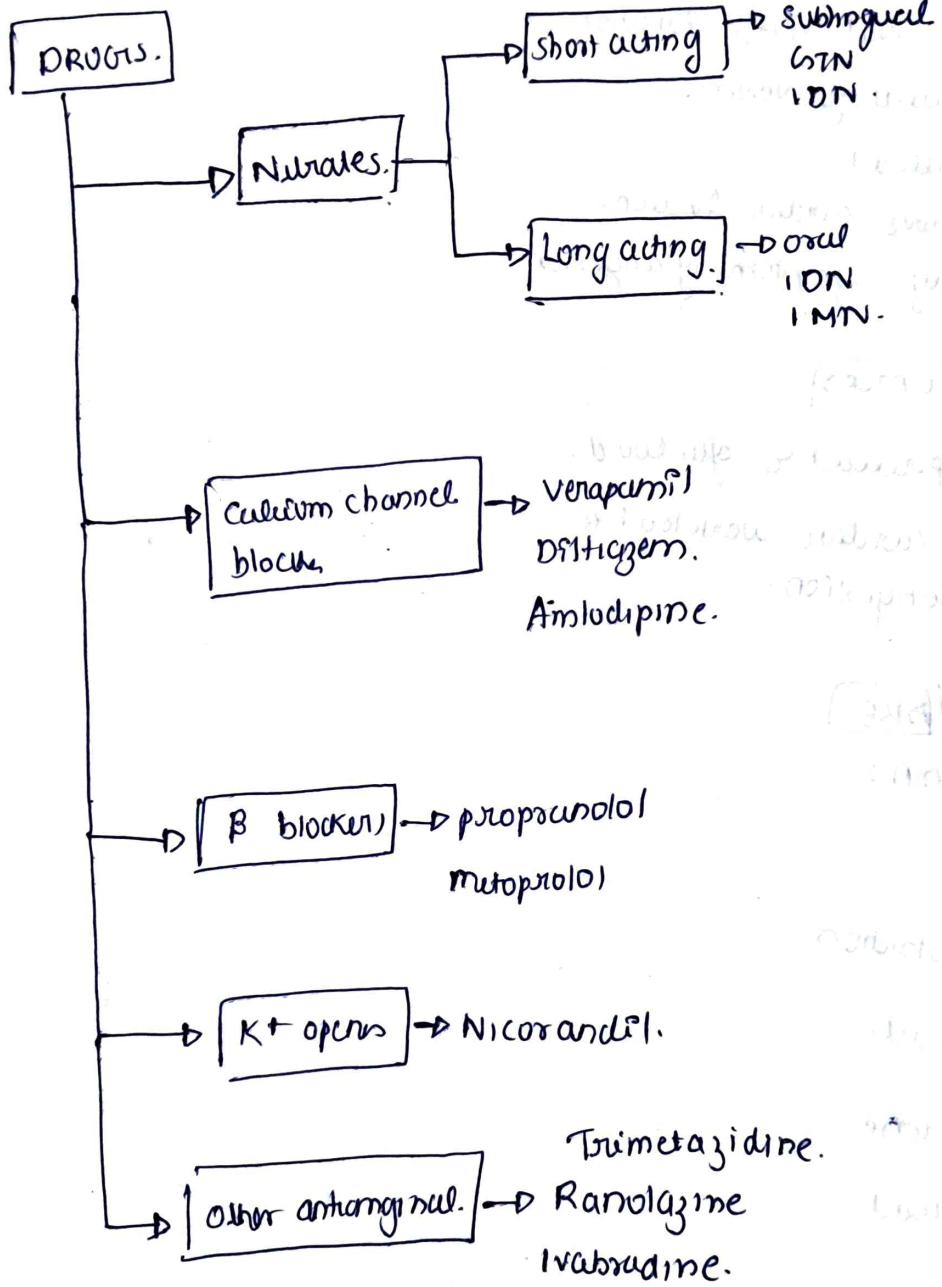 DRUGS.
Short acting
Sublingual
GTN
IDN.
Nitrates.
Long acting.
oral
IDN
IMN.
Calcium channel
blockers
Verapamil
Diltiazem.
Amlodipine.
β blockers
propranolol
metoprolol
K+ openers
Nicorandil.
Other antianginal.
Trimetazidine.
Ranolazine
Ivabradine.